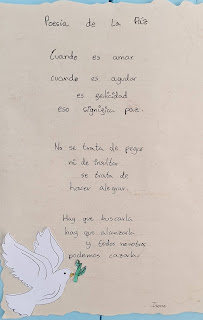 Poesía de La Paz
Cuando es amar
cuando es ayudar
es felicidad
eso significa paz.
No se trata de pegar
ni de insultar
se trata de
hacer alegrar.
Hay que buscarla
hay que alcanzarla
y todos nosotros
podemos cazarla.